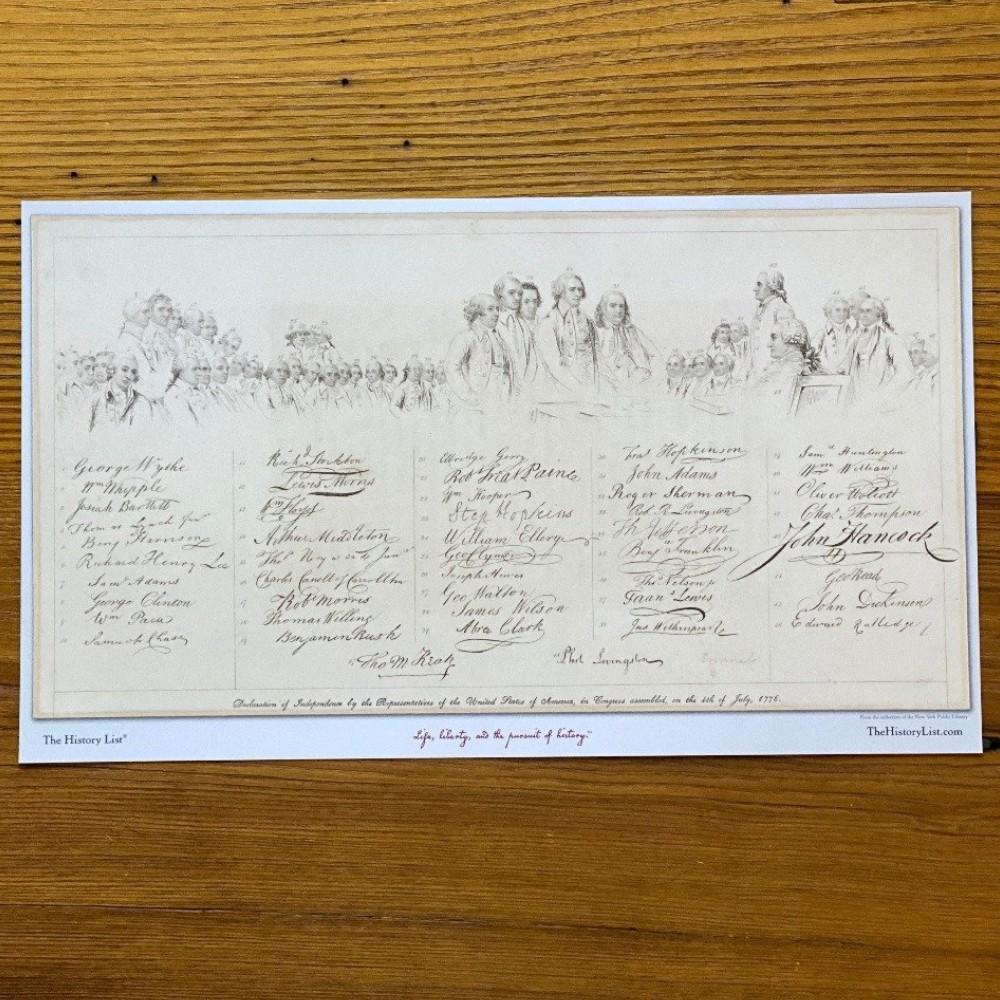 George Wythe
Wm Whipple
Josiah Bartlett
Thomas Lynch Junr
Benj Harrison
Richard Henry Lee
Saml Adams
George Clinton
Wm Paca
Samuel Chase
Richd Stockton
Lewis Morris
Wm Floyd
Arthur Middleton
Thos Heyward Junr
Charles Carroll of Carrollton
Robt Morris
Thomas Willing
Benjamin Rush
Elbridge Gerry
Robt Treat Paine
Wm Hooper
Step Hopkins
William Ellery
Geo Clymer
Joseph Hewes
Geo Walton
James Wilson
Abra Clark
Fras Hopkinson
John Adams
Roger Sherman
Rob. R. Livingston
Th Jefferson
Benj Franklin
Thos Nelson jr
Fran Lewis
Jno Witherspoon
Saml Huntington
Wm Williams
Oliver Wolcott
Chas. Thompson
John Hancock
Geo Read
John Dickinson
Edward Rutledge
Tho M Kean
Phil Livingston
Declaration of Independence by the Representatives of the United States of America, in Congress assembled, on the 4th of July, 1776.
From the collection of the New York Public Library
The History List®
Life, liberty, and the pursuit of history.™
TheHistoryList.com